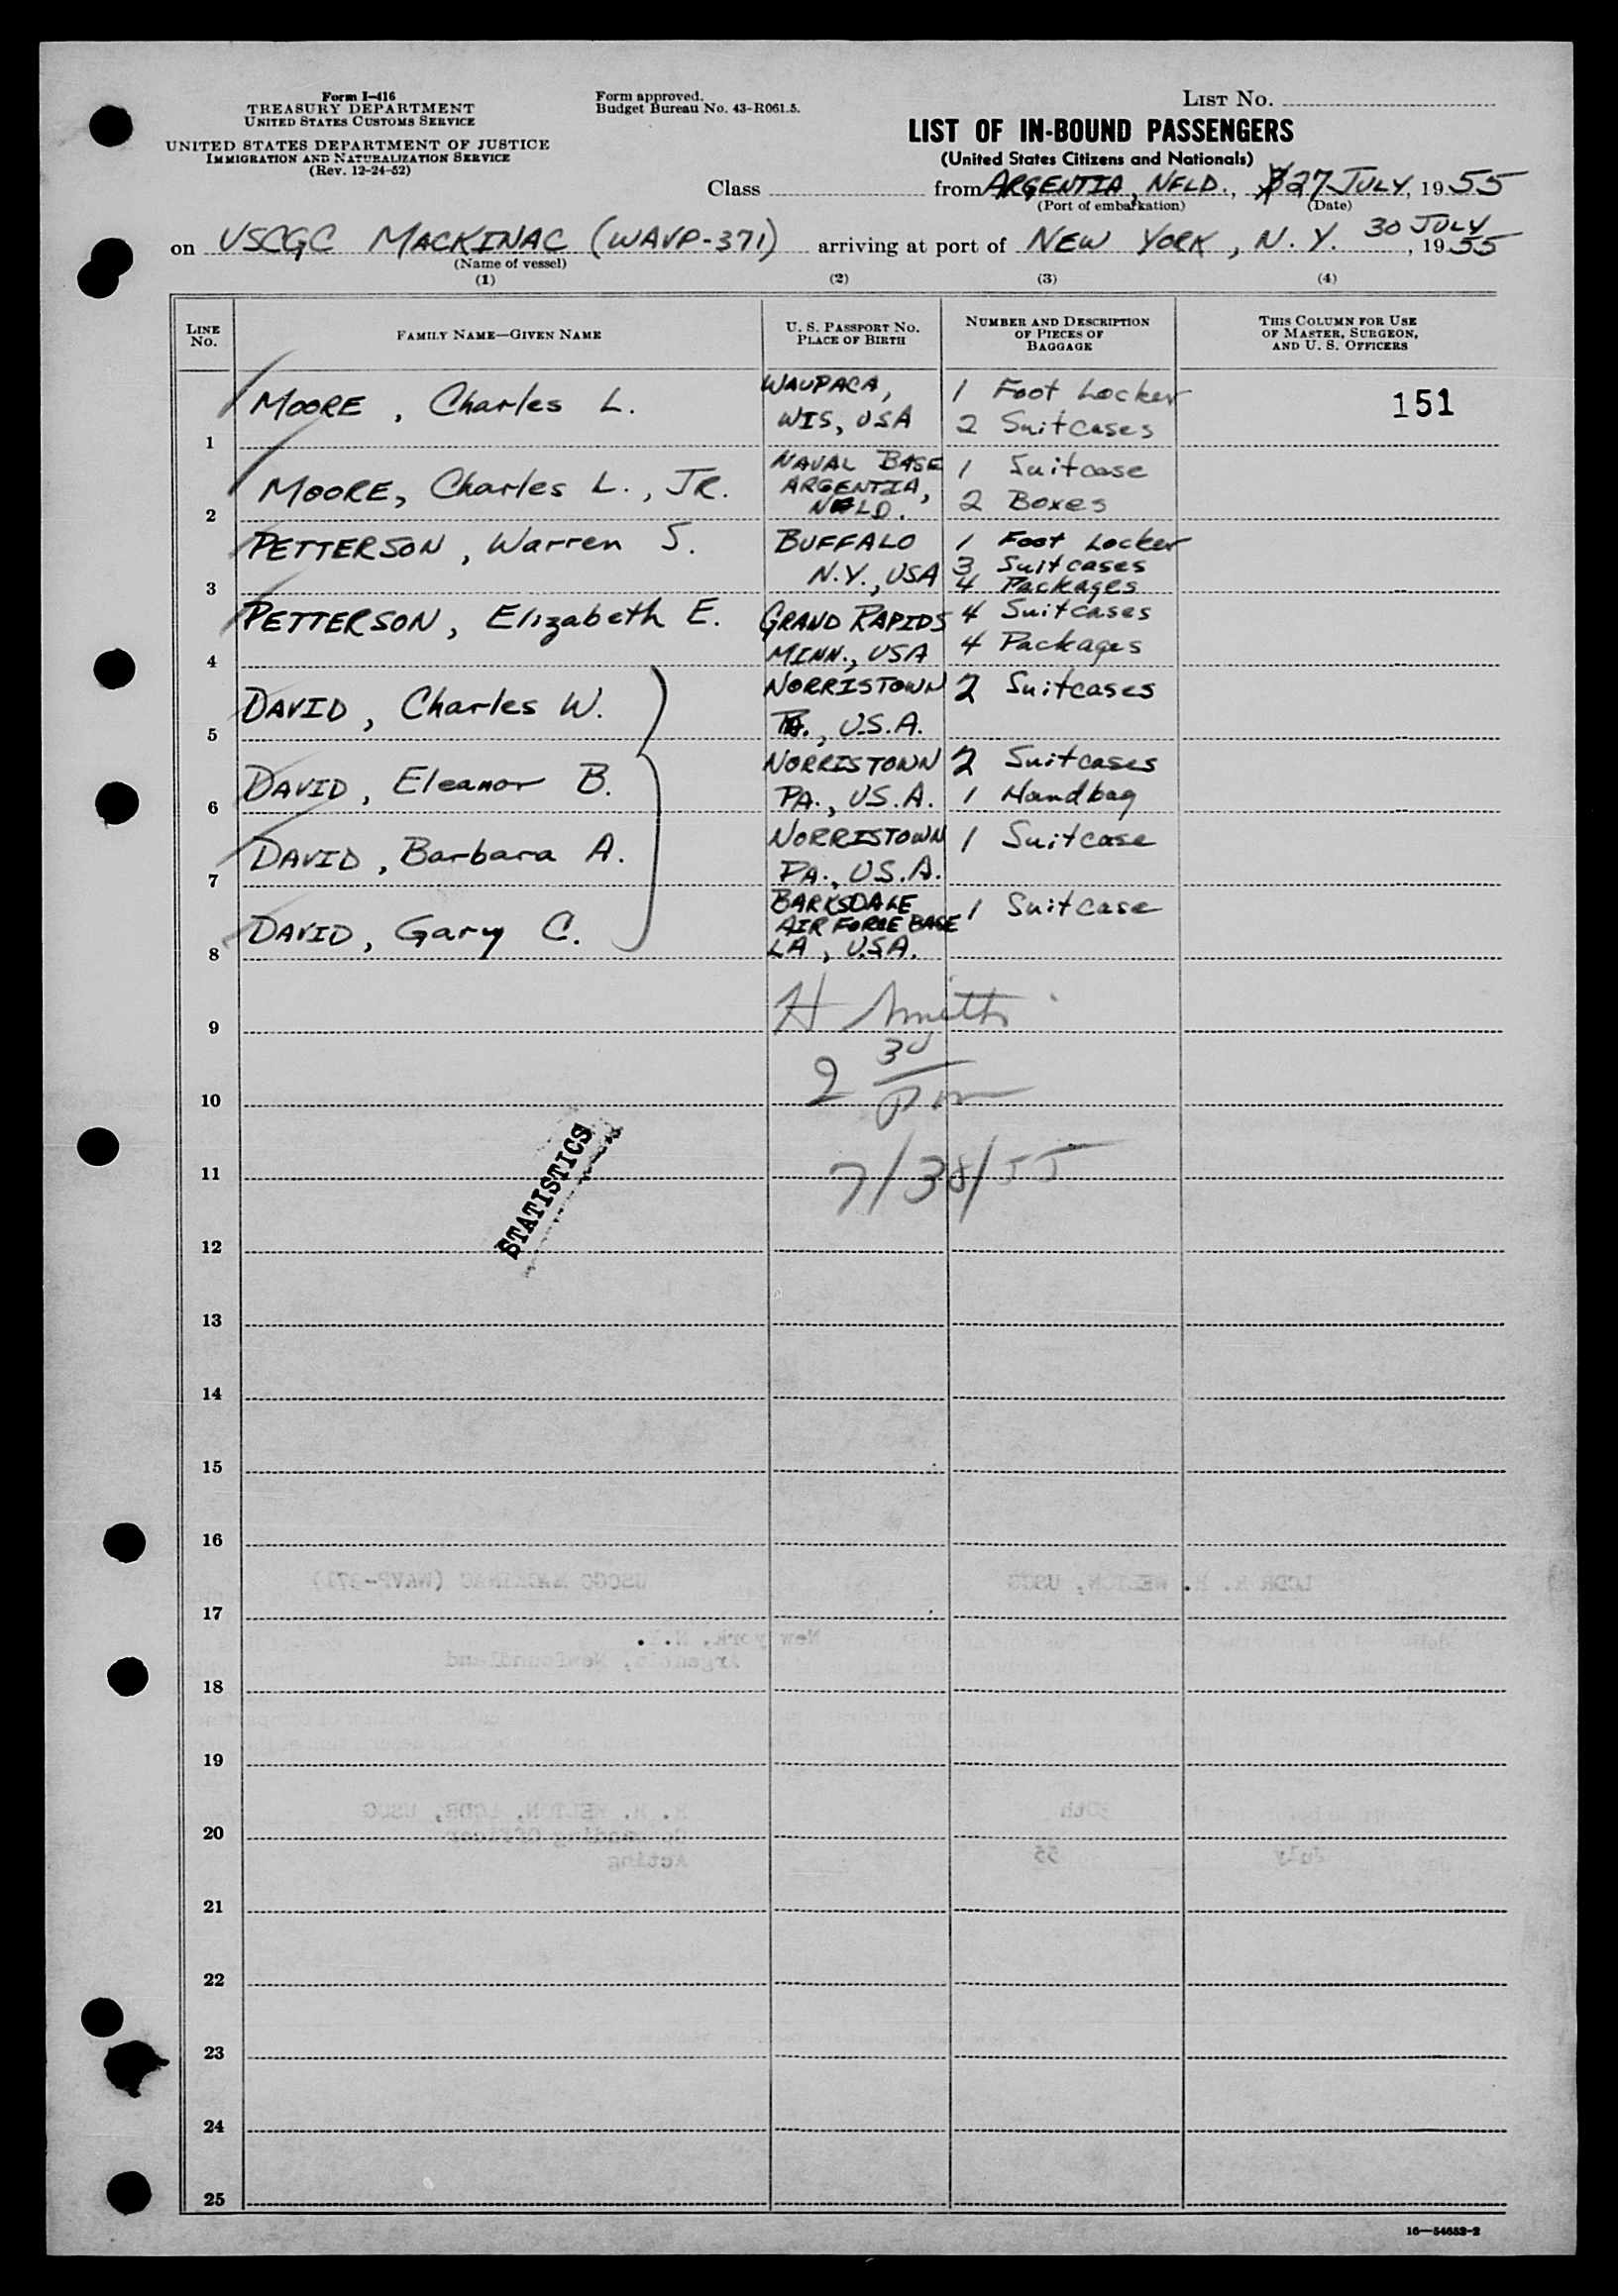 Form I-416
TREASURY DEPARTMENT
UNITED STATES CUSTOMS SERVICE
UNITED STATES DEPARTMENT OF JUSTICE
IMMIGRATION AND NATURALIZATION SERVICE
(Rev. 12-24-52)
Form approved.
Budget Bureau No. 43-R061.5.
LIST NO.
LIST OF IN-BOUND PASSENGERS
(United States Citizens and Nationals)
Class from ARGENTIA, NFLD., 27 JULY, 1955
(Port of embarkation) (Date)
on USCGC MACKINAC (WAVP-371) arriving at port of NEW YORK, N.Y. 30 JULY, 1955
(Name of vessel)
(1) (2) (3) (4)
LINE NO.
FAMILY NAME—GIVEN NAME
U. S. PASSPORT NO.
PLACE OF BIRTH
NUMBER AND DESCRIPTION
OF PIECES OF
BAGGAGE
THIS COLUMN FOR USE
OF MASTER, SURGEON,
AND U. S. OFFICERS
1 MOORE, Charles L. WAUPACA, WIS, USA 1 Foot Locker 2 Suitcases 151
2 MOORE, Charles L., JR. NAVAL BASE ARGENTIA, NFLD. 1 Suitcase 2 Boxes
3 PETTERSON, Warren S. BUFFALO N.Y., USA 1 Foot Locker 3 Suitcases 4 Packages
4 PETTERSON, Elizabeth E. GRAND RAPIDS MINN., USA 4 Suitcases 4 Packages
5 DAVID, Charles W. NORRISTOWN PA., U.S.A. 2 Suitcases
6 DAVID, Eleanor B. NORRISTOWN PA., U.S.A. 2 Suitcases 1 Handbag
7 DAVID, Barbara A. NORRISTOWN PA., U.S.A. 1 Suitcase
8 DAVID, Gary C. BARKSDALE AIR FORCE BASE LA, U.S.A. 1 Suitcase
9 H Smith
10 2 30 Pm
11 7/30/55
STATISTICS
12
13
14
15
16
USCGC MACKINAC (WAVP-371)
17
New York, N.Y.
Argentia, Newfoundland
18
19
20
Commanding Officer
Acting
30th
July
55
21
22
23
24
25
16—54652-2